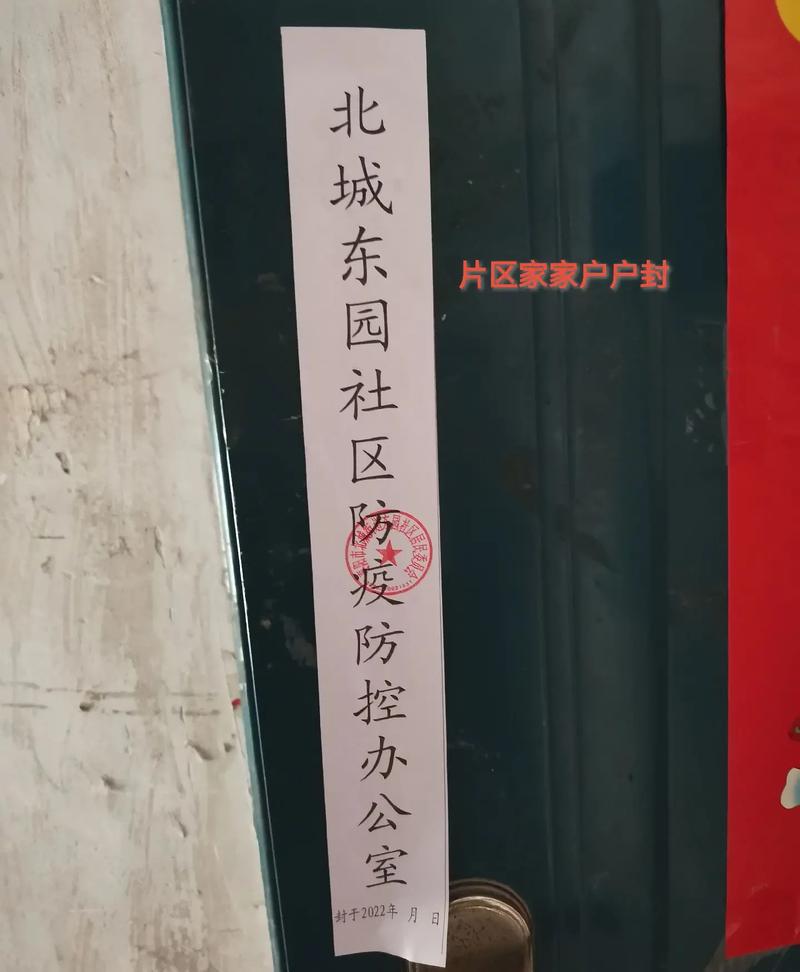 北城东园社区防疫防控办公室
片区家家户户封
封于2022年 月 日